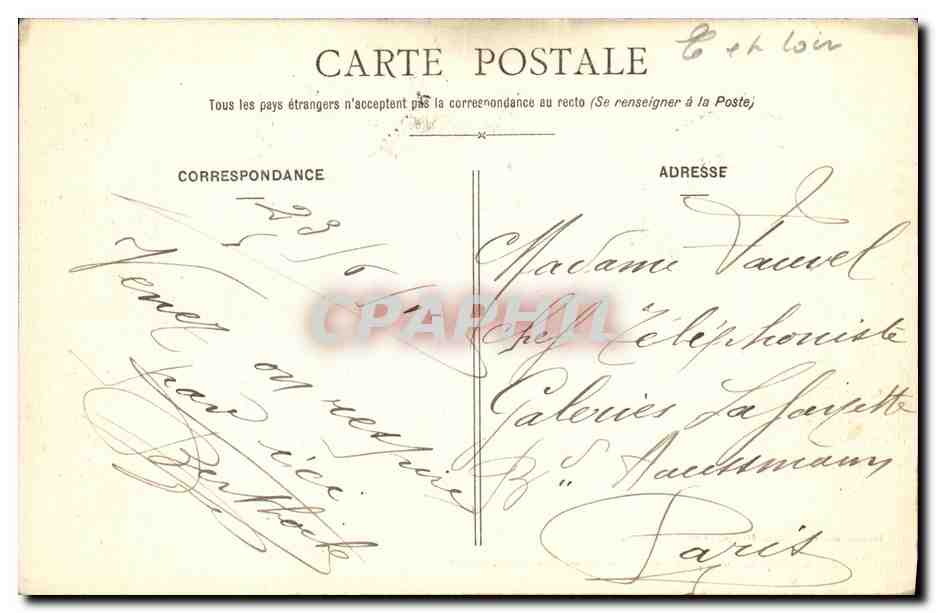 E et Loir
CARTE POSTALE
Tous les pays étrangers n'acceptent pas la correspondance au recto (Se renseigner à la Poste)
CORRESPONDANCE
ADRESSE
Venez on respire
ici
Madame Vauvel
Chef Téléphoniste
Galeries Lafayette
Bd Haussmann
Paris
CPAPHIL